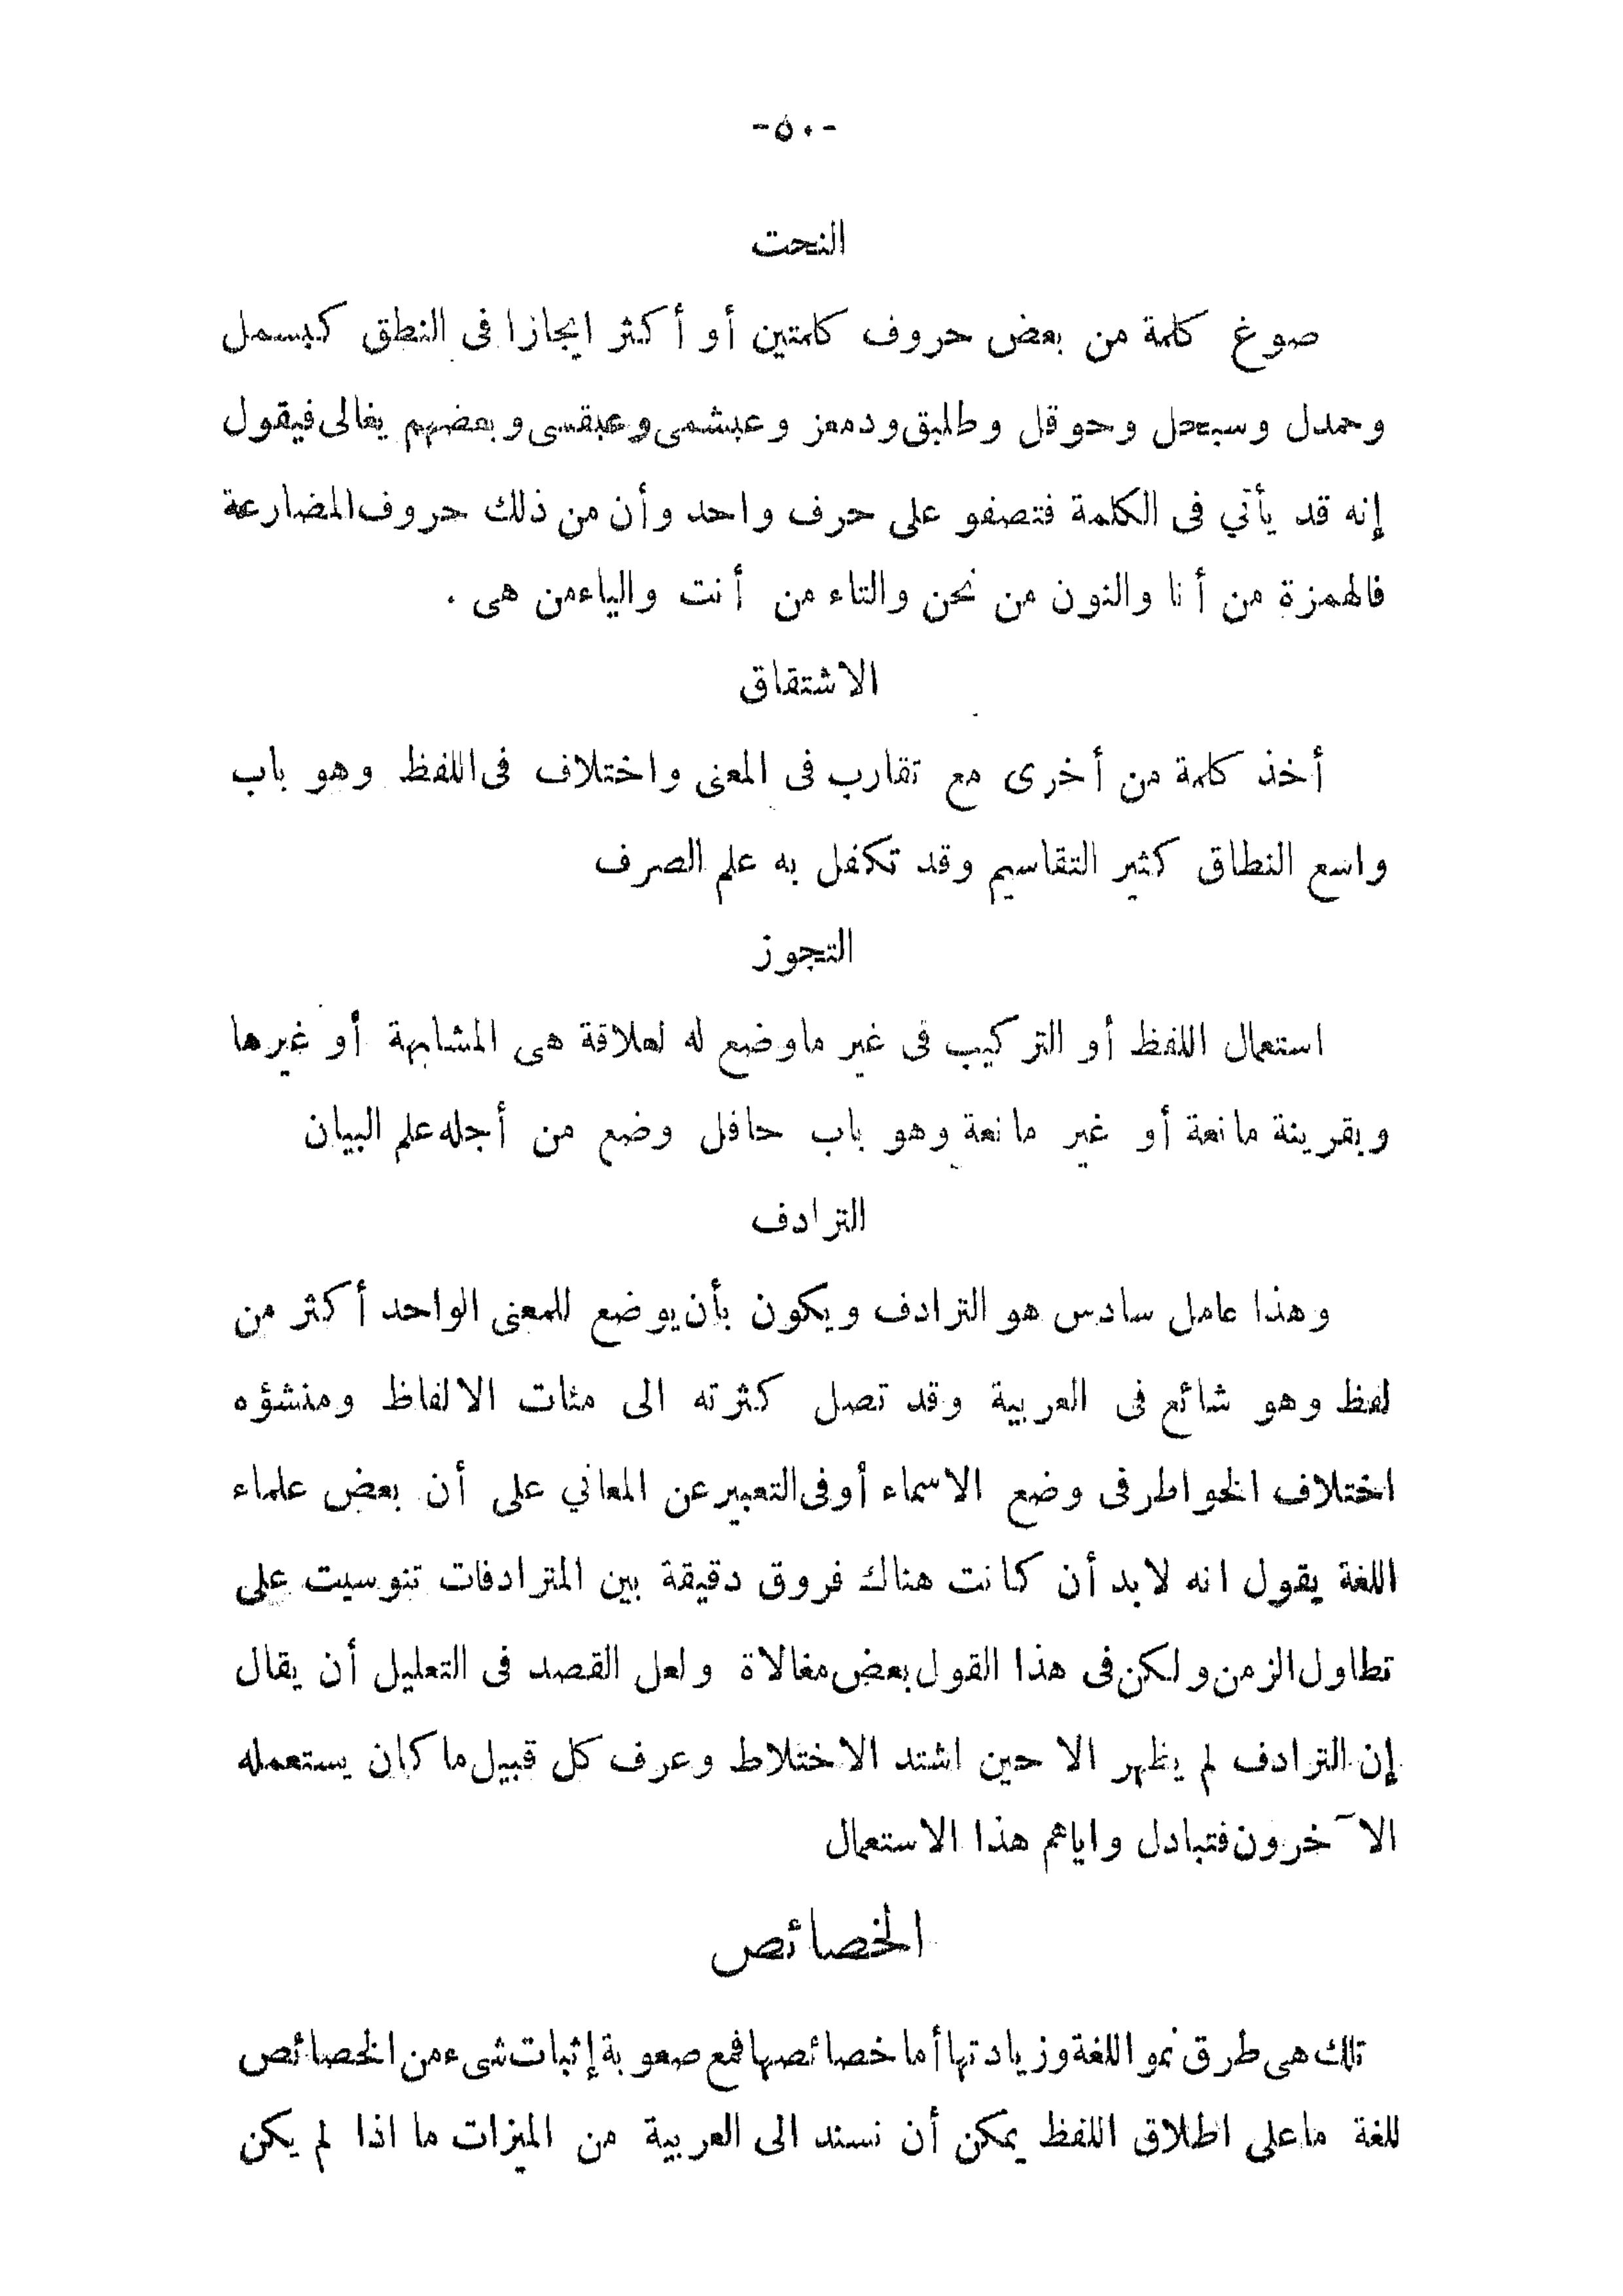 -٥٠-
النحت
صوغ كلمة من بعض حروف كلمتين أو أكثر ايجازا فى النطق كبسمل
وحمدل وسبحل وحوقل وطلبق ودمعز وعبشمى وعبقسى وبعضهم يغالى فيقول
إنه قد يأتي فى الكلمة فتصفو على حرف واحد وأن من ذلك حروف المضارعة
فالهمزة من أنا والنون من نحن والتاء من أنت والياء من هى .
الاشتقاق
أخذ كلمة من أخرى مع تقارب فى المعنى واختلاف فى اللفظ وهو باب
واسع النطاق كثير التقاسيم وقد تكفل به علم الصرف
التجوز
استعمال اللفظ أو التركيب فى غير ماوضع له لعلاقة هى المشابهة أو غيرها
وبقرينة مانعة أو غير مانعة وهو باب حافل وضع من أجله علم البيان
الترادف
وهذا عامل سادس هو الترادف ويكون بأن يوضع للمعنى الواحد أكثر من
لفظ وهو شائع فى العربية وقد تصل كثرته الى مئات الالفاظ ومنشؤه
اختلاف الخواطر فى وضع الاسماء أو فى التعبير عن المعاني على أن بعض علماء
اللغة يقول انه لابد أن كانت هناك فروق دقيقة بين المترادفات تنوسيت على
تطاول الزمن ولكن فى هذا القول بعض مغالاة ولعل القصد فى التعليل أن يقال
إن الترادف لم يظهر الا حين اشتد الاختلاط وعرف كل قبيل ما كان يستعمله
الآخرون فتبادل واياهم هذا الاستعمال
الخصائص
تلك هى طرق نمو اللغة وزيادتها أما خصائصها فمع صعوبة إثبات شىء من الخصائص
للغة ما على اطلاق اللفظ يمكن أن نسند الى العربية من الميزات ما اذا لم يكن